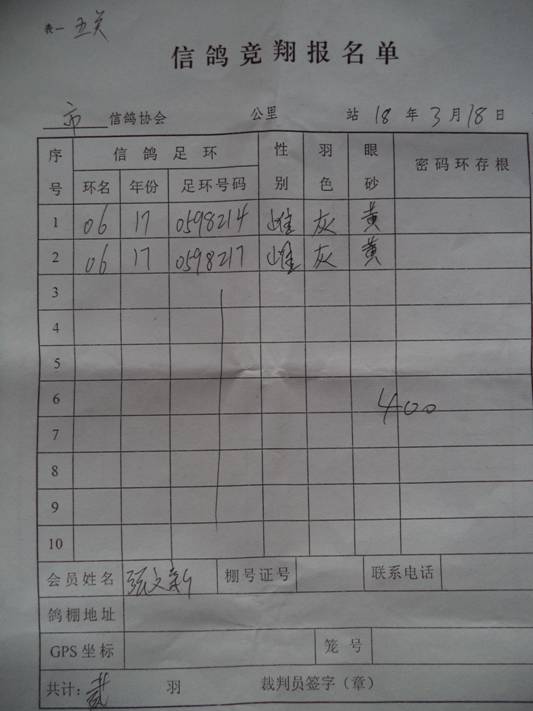 表一 五关
信鸽竞翔报名单
市 信鸽协会 公里 站 18 年 3 月 18 日
序号 信鸽足环 性别 羽色 眼砂 密码环存根
环名 年份 足环号码
1 06 17 0598214 雌 灰 黄
2 06 17 0598217 雌 灰 黄
3
4
5
6 400
7
8
9
10
会员姓名 张文新 棚号证号 联系电话
鸽棚地址
GPS 坐标 笼号
共计: 贰 羽 裁判员签字（章）